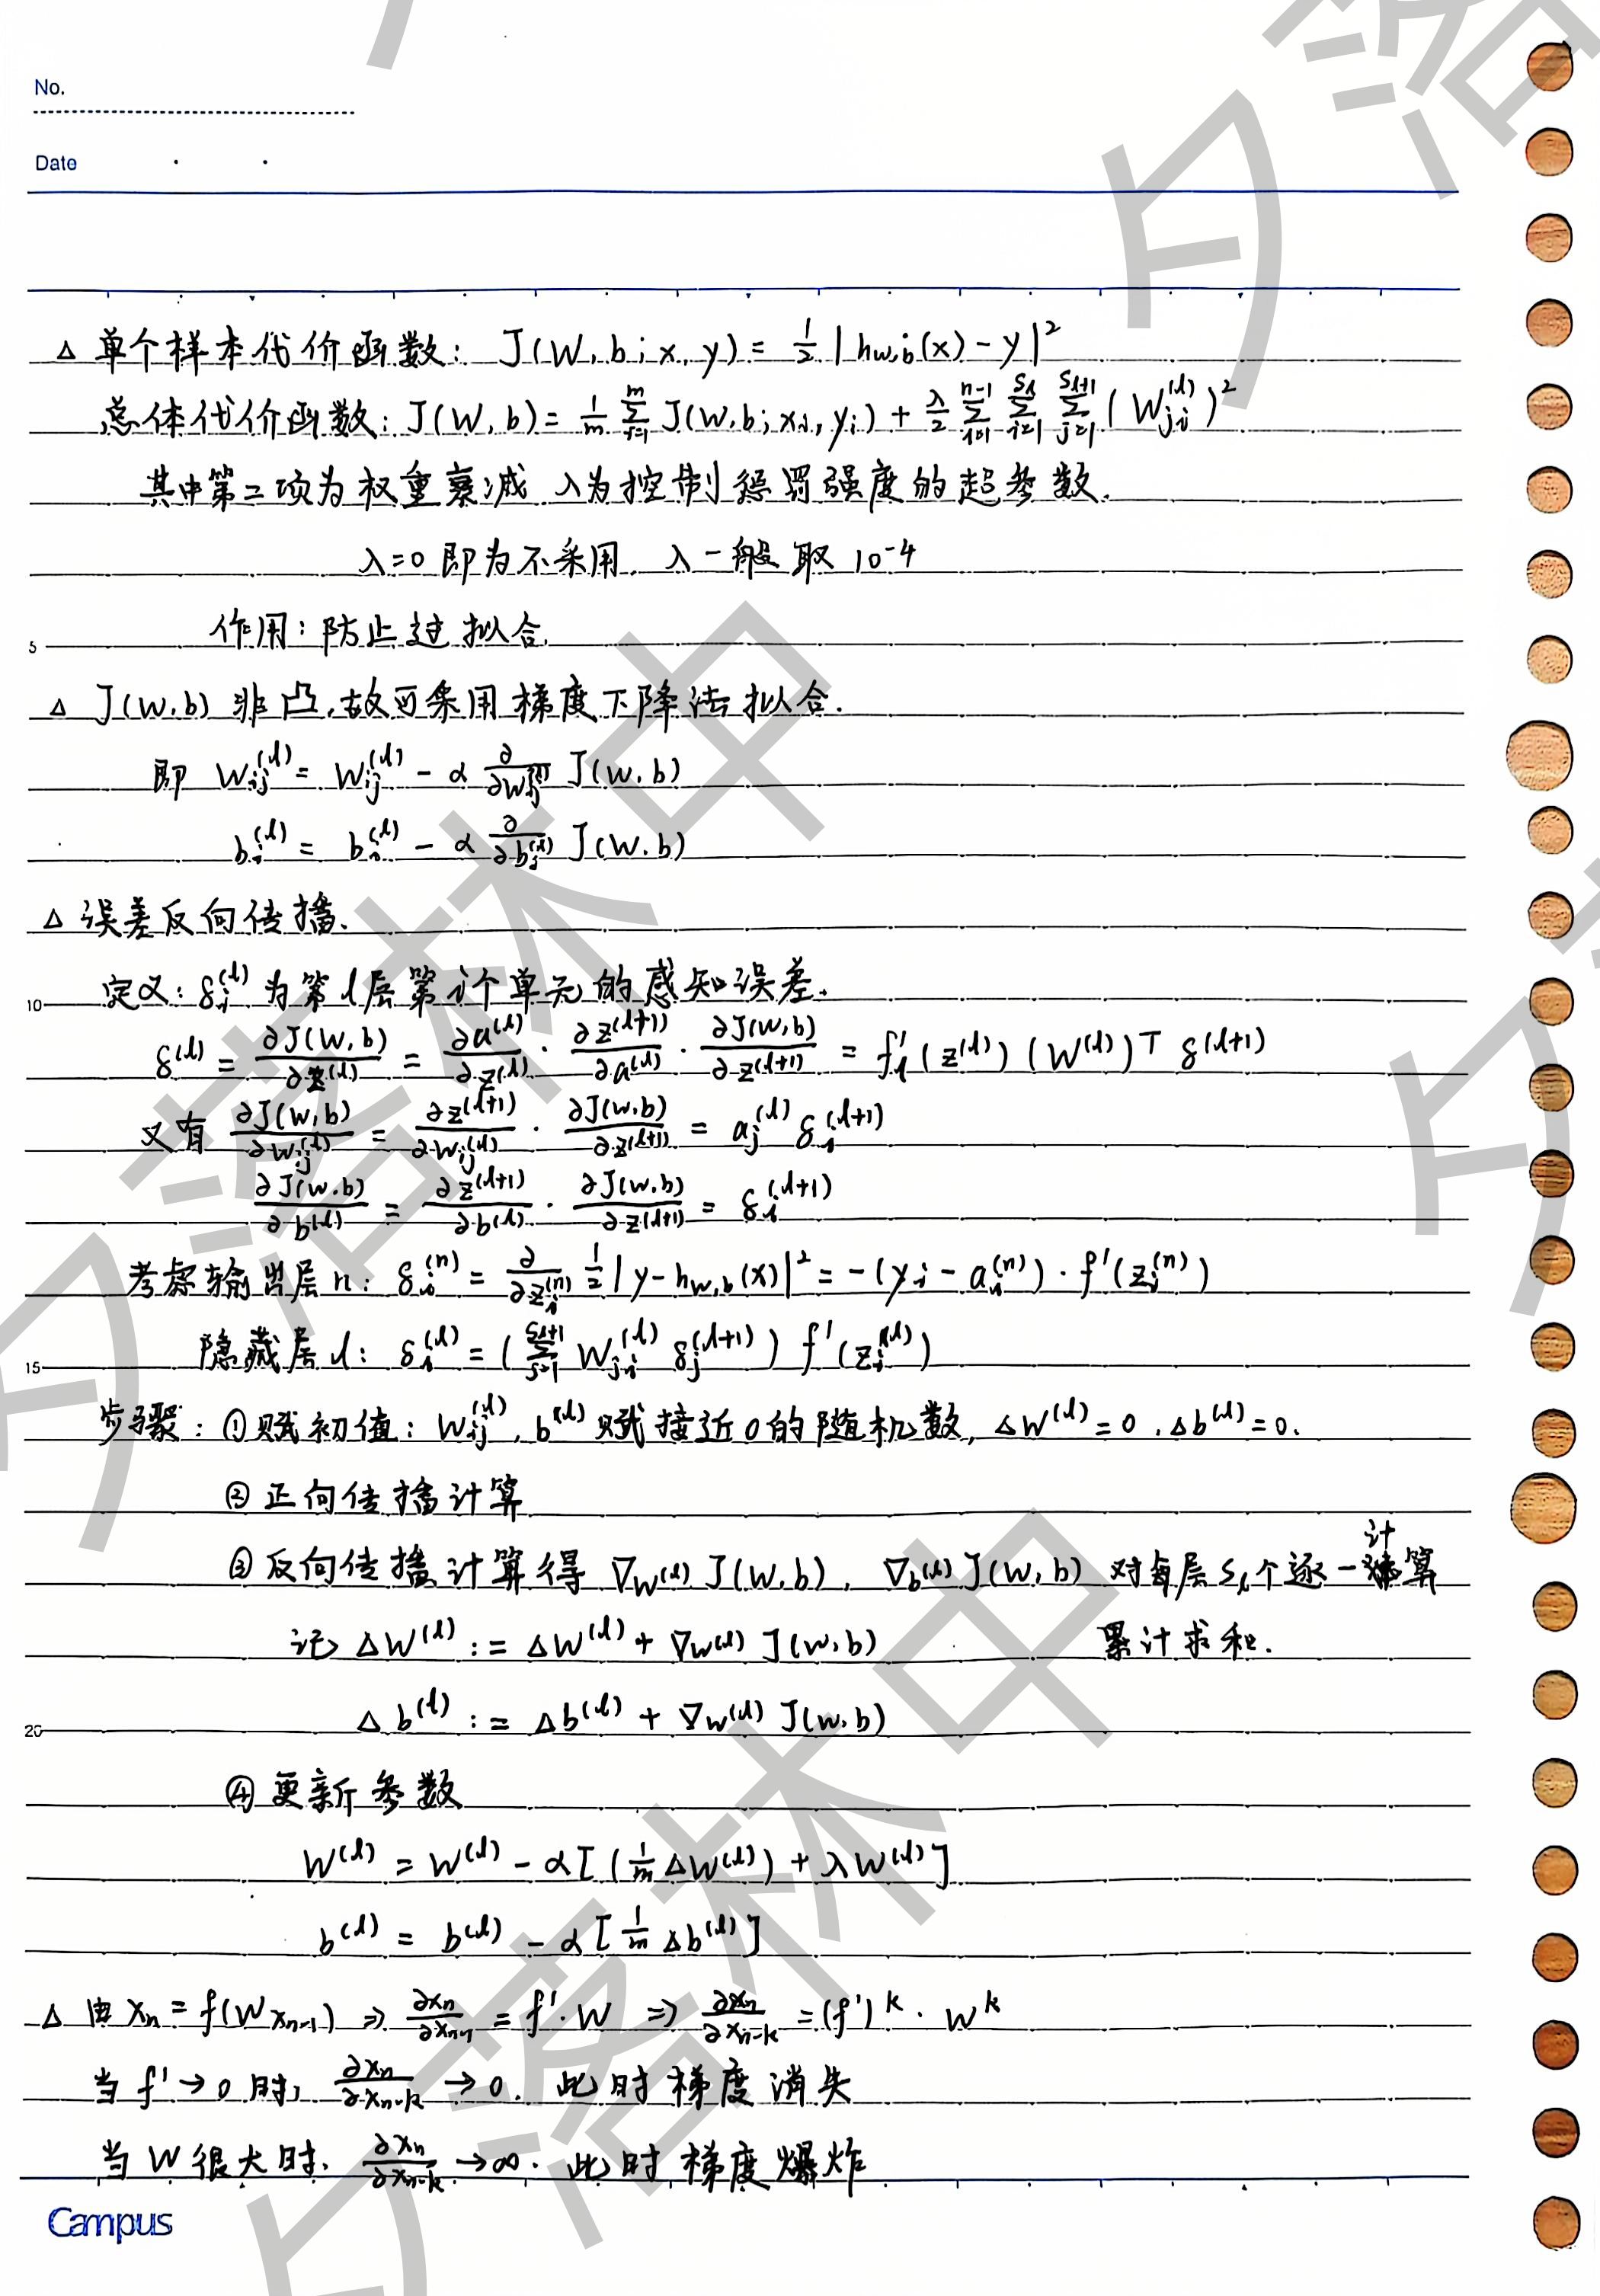 No.
Date
△ 单个样本代价函数: J(W,b;x,y) = 1/2 |h_{w,b}(x) - y|²
总体代价函数: J(W,b) = 1/m Σ_{i=1}^{m} J(W,b;x_i,y_i) + λ/2 Σ_{l=1}^{n-1} Σ_{i=1}^{S_l} Σ_{j=1}^{S_{l+1}} (W_{ji}^{(l)})²
其中第二项为权重衰减 λ为控制惩罚强度的超参数.
λ=0 即为不采用. λ一般取 10⁻⁴
5 作用: 防止过拟合.
△ J(W,b) 非凸,故可采用梯度下降法拟合.
即 W_{ij}^{(l)} = W_{ij}^{(l)} - α ∂/∂W_{ij}^{(l)} J(W,b)
b_i^{(l)} = b_i^{(l)} - α ∂/∂b_i^{(l)} J(W,b)
△ 误差反向传播.
10 定义: δ_i^{(l)} 为第l层第i个单元的感知误差.
δ^{(l)} = ∂J(W,b)/∂z^{(l)} = ∂a^{(l)}/∂z^{(l)} · ∂z^{(l+1)}/∂a^{(l)} · ∂J(W,b)/∂z^{(l+1)} = f'_l(z^{(l)}) (W^{(l)})^T δ^{(l+1)}
又有 ∂J(W,b)/∂W_{ij}^{(l)} = ∂z^{(l+1)}/∂W_{ij}^{(l)} · ∂J(W,b)/∂z^{(l+1)} = a_j^{(l)} δ_i^{(l+1)}
∂J(W,b)/∂b^{(l)} = ∂z^{(l+1)}/∂b^{(l)} · ∂J(W,b)/∂z^{(l+1)} = δ_i^{(l+1)}
考虑输出层n: δ_i^{(n)} = ∂/∂z_i^{(n)} 1/2 |y - h_{w,b}(x)|² = -(y_i - a_i^{(n)}) · f'(z_i^{(n)})
15 隐藏层l: δ_i^{(l)} = (Σ_{j=1}^{S_{l+1}} W_{ji}^{(l)} δ_j^{(l+1)}) f'(z_i^{(l)})
步骤: ①赋初值: W_{ij}^{(l)}, b^{(l)} 赋接近0的随机数, ΔW^{(l)}=0, Δb^{(l)}=0.
②正向传播计算
③反向传播计算得 ∇_{W^{(l)}} J(W,b), ∇_{b^{(l)}} J(W,b) 对每层S_l个逐一计算
记 ΔW^{(l)} := ΔW^{(l)} + ∇_{W^{(l)}} J(W,b) 累计求和.
20 Δb^{(l)} := Δb^{(l)} + ∇_{W^{(l)}} J(W,b)
④更新参数
W^{(l)} = W^{(l)} - α[(1/m ΔW^{(l)}) + λW^{(l)}]
b^{(l)} = b^{(l)} - α[1/m Δb^{(l)}]
△ 由 x_n = f(Wx_{n-1}) ⇒ ∂x_n/∂x_{n-1} = f'·W ⇒ ∂x_n/∂x_{n-k} = (f')^k · W^k
当 f'→0 时, ∂x_n/∂x_{n-k} → 0. 此时梯度消失
当 W 很大时, ∂x_n/∂x_{n-k} → ∞. 此时梯度爆炸
Campus
夕落林中
夕落林中
夕落
夕